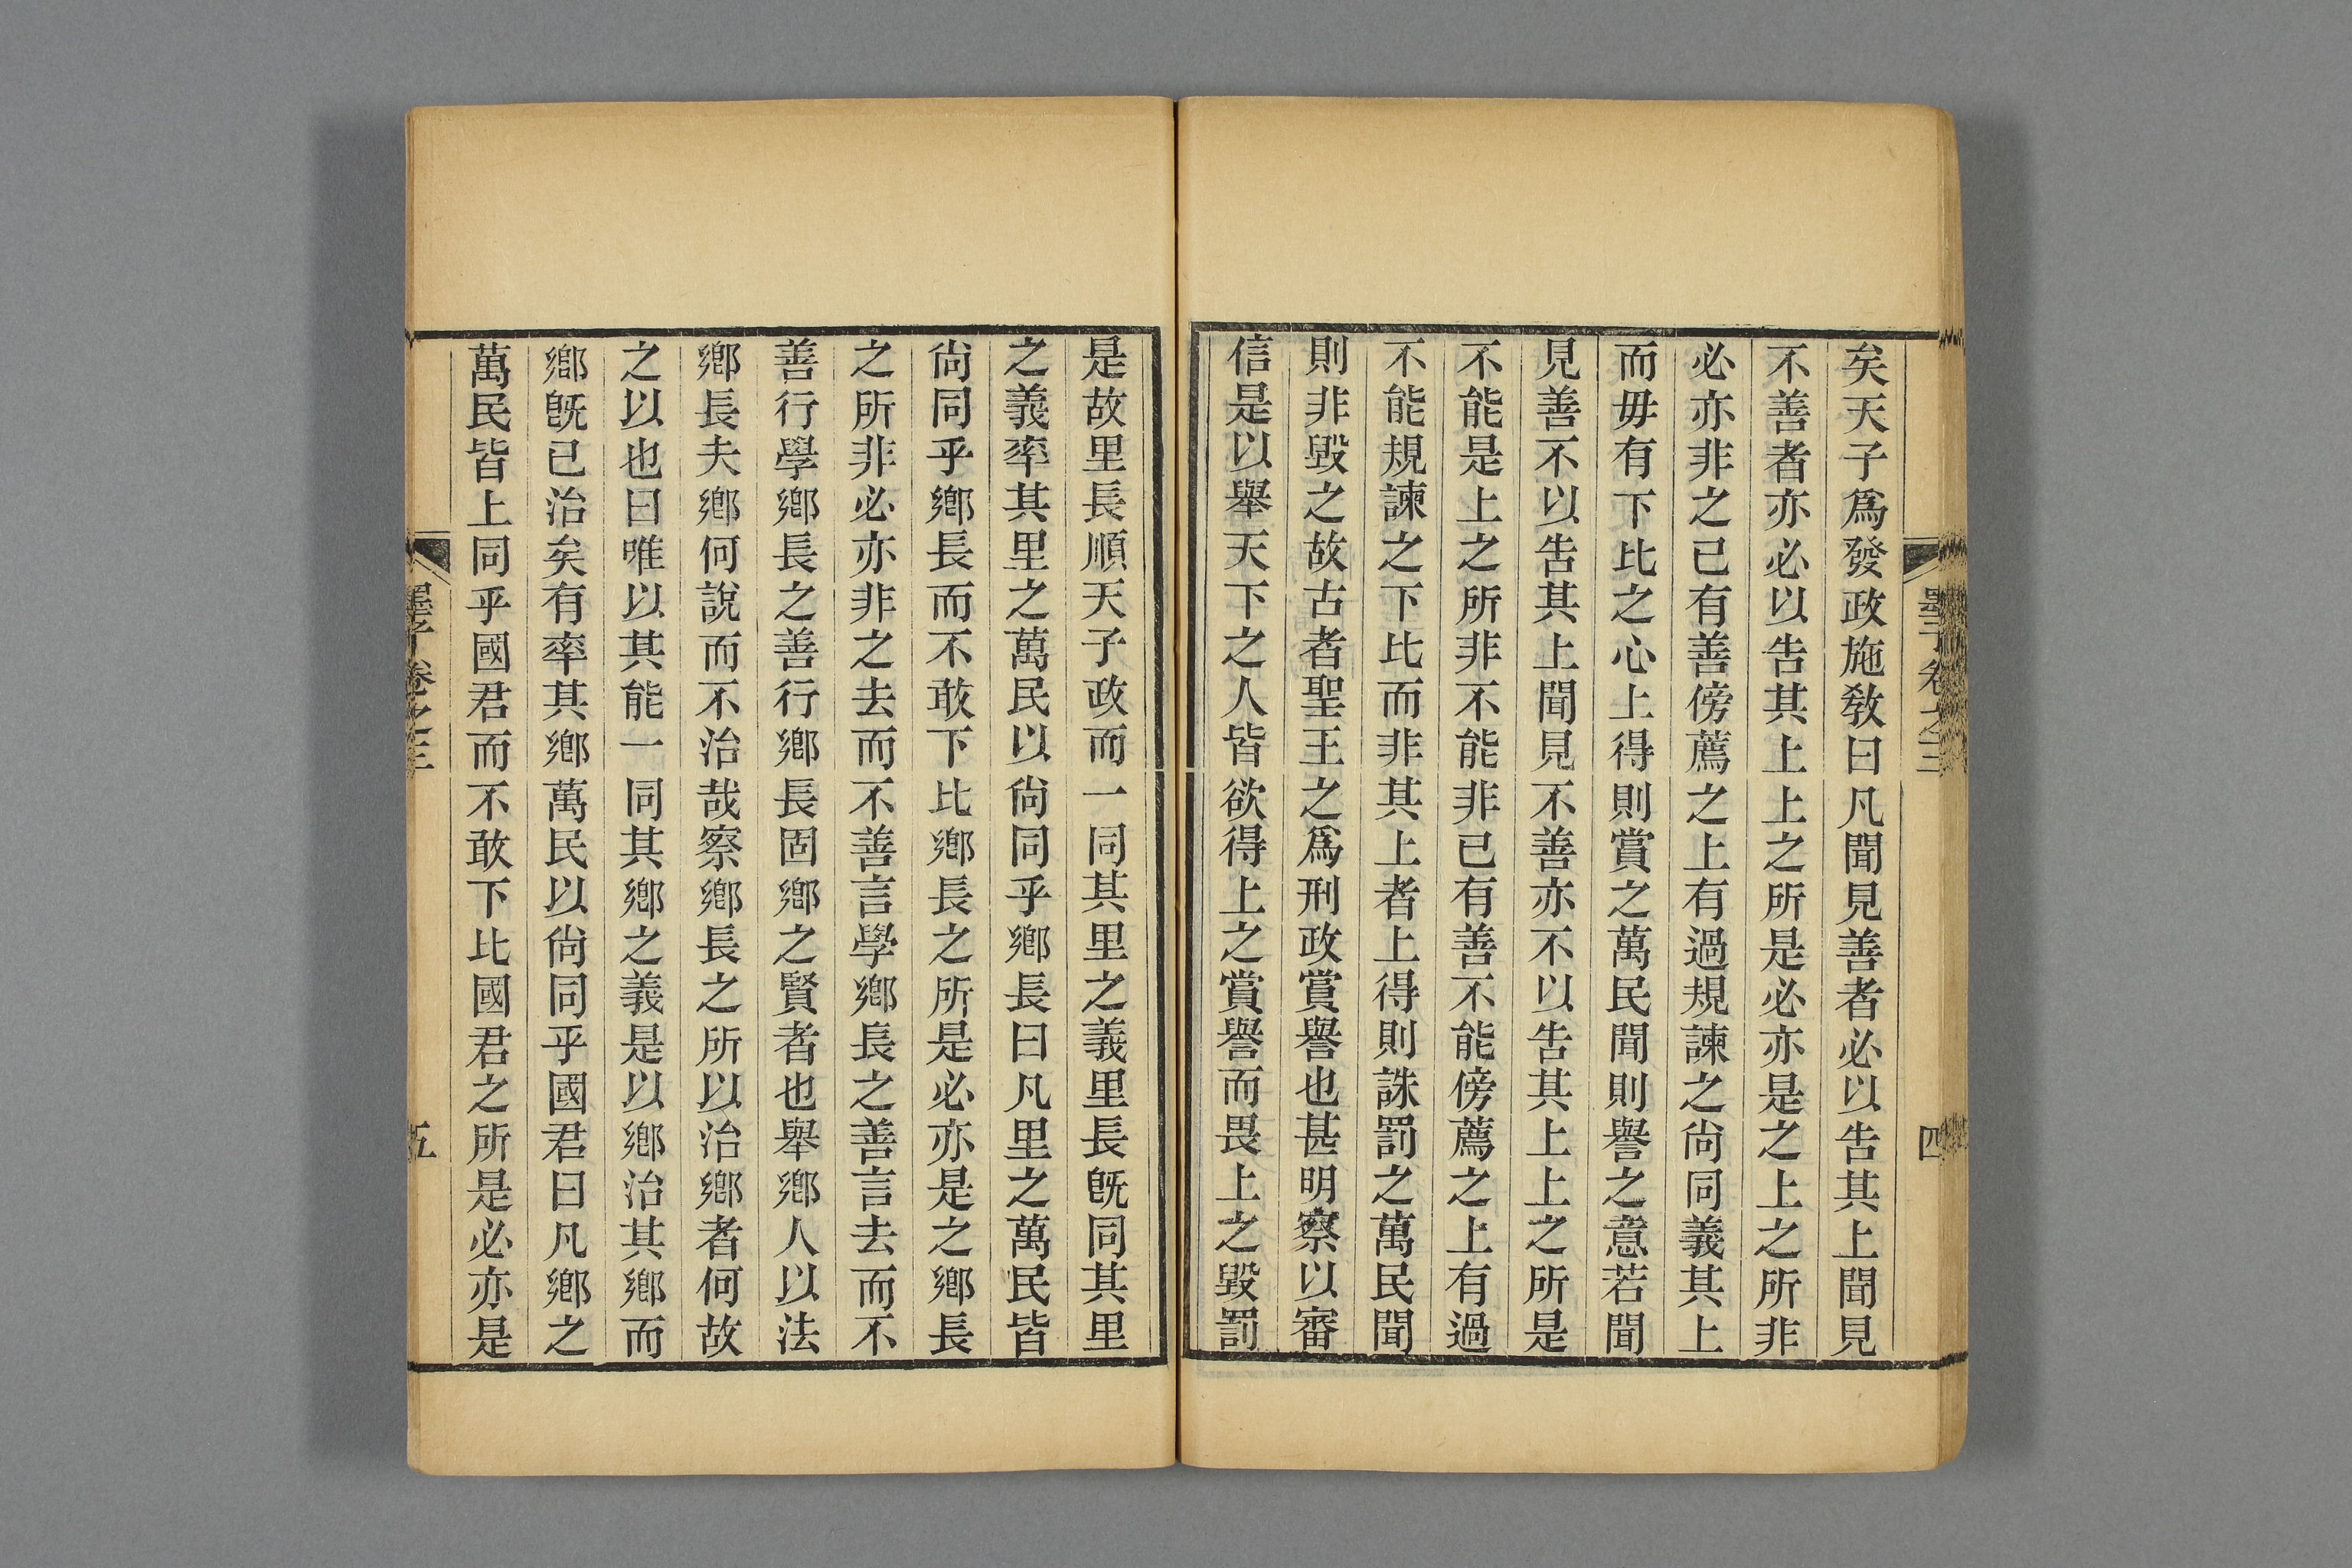 墨子卷之三
四
矣天子爲發政施敎曰凡聞見善者必以吿其上聞見
不善者亦必以吿其上上之所是必亦是之上之所非
必亦非之已有善傍薦之上有過規諫之尙同義其上
而毋有下比之心上得則賞之萬民聞則譽之意若聞
見善不以吿其上聞見不善亦不以吿其上上之所是
不能是上之所非不能非已有善不能傍薦之上有過
不能規諫之下比而非其上者上得則誅罰之萬民聞
則非毀之故古者聖王之爲刑政賞譽也甚明察以審
信是以舉天下之人皆欲得上之賞譽而畏上之毀罰
是故里長順天子政而一同其里之義里長旣同其里
之義率其里之萬民以尙同乎鄉長曰凡里之萬民皆
尙同乎鄉長而不敢下比鄉長之所是必亦是之鄉長
之所非必亦非之去而不善言學鄉長之善言去而不
善行學鄉長之善行鄉長固鄉之賢者也舉鄉人以法
鄉長夫鄉何說而不治哉察鄉長之所以治鄉者何故
之以也曰唯以其能一同其鄉之義是以鄉治其鄉而
鄉旣已治矣有率其鄉萬民以尙同乎國君曰凡鄉之
萬民皆上同乎國君而不敢下比國君之所是必亦是
墨子卷之三
五